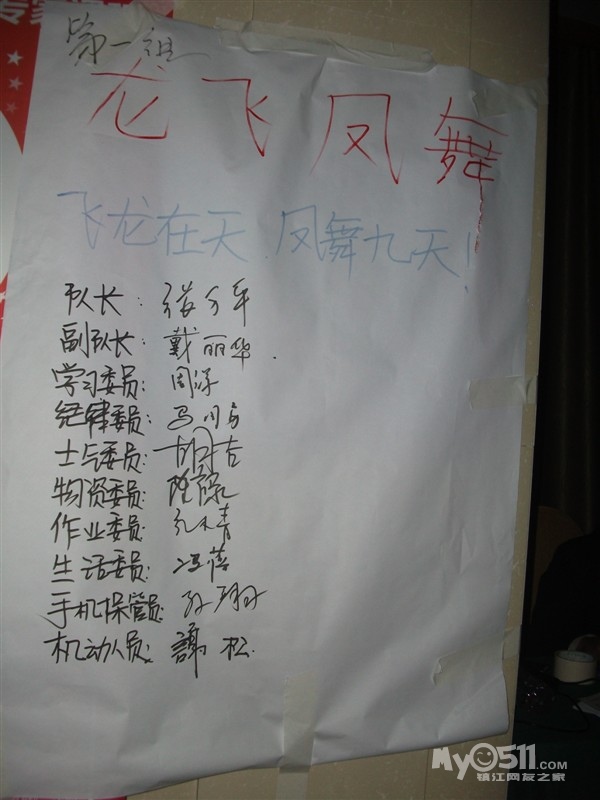 专家
第一组
龙飞凤舞
飞龙在天 凤舞九天!
队长:
副队长: 戴丽华.
学习委员: 周洋
纪律委员: 马
士与委员: 胡吉
物资委员: 陆
作业委员: 孔青
生活委员: 冯蓓
手机保管员: 孙翔
机动人员: 謝松.
My0511.com
镇江网友之家